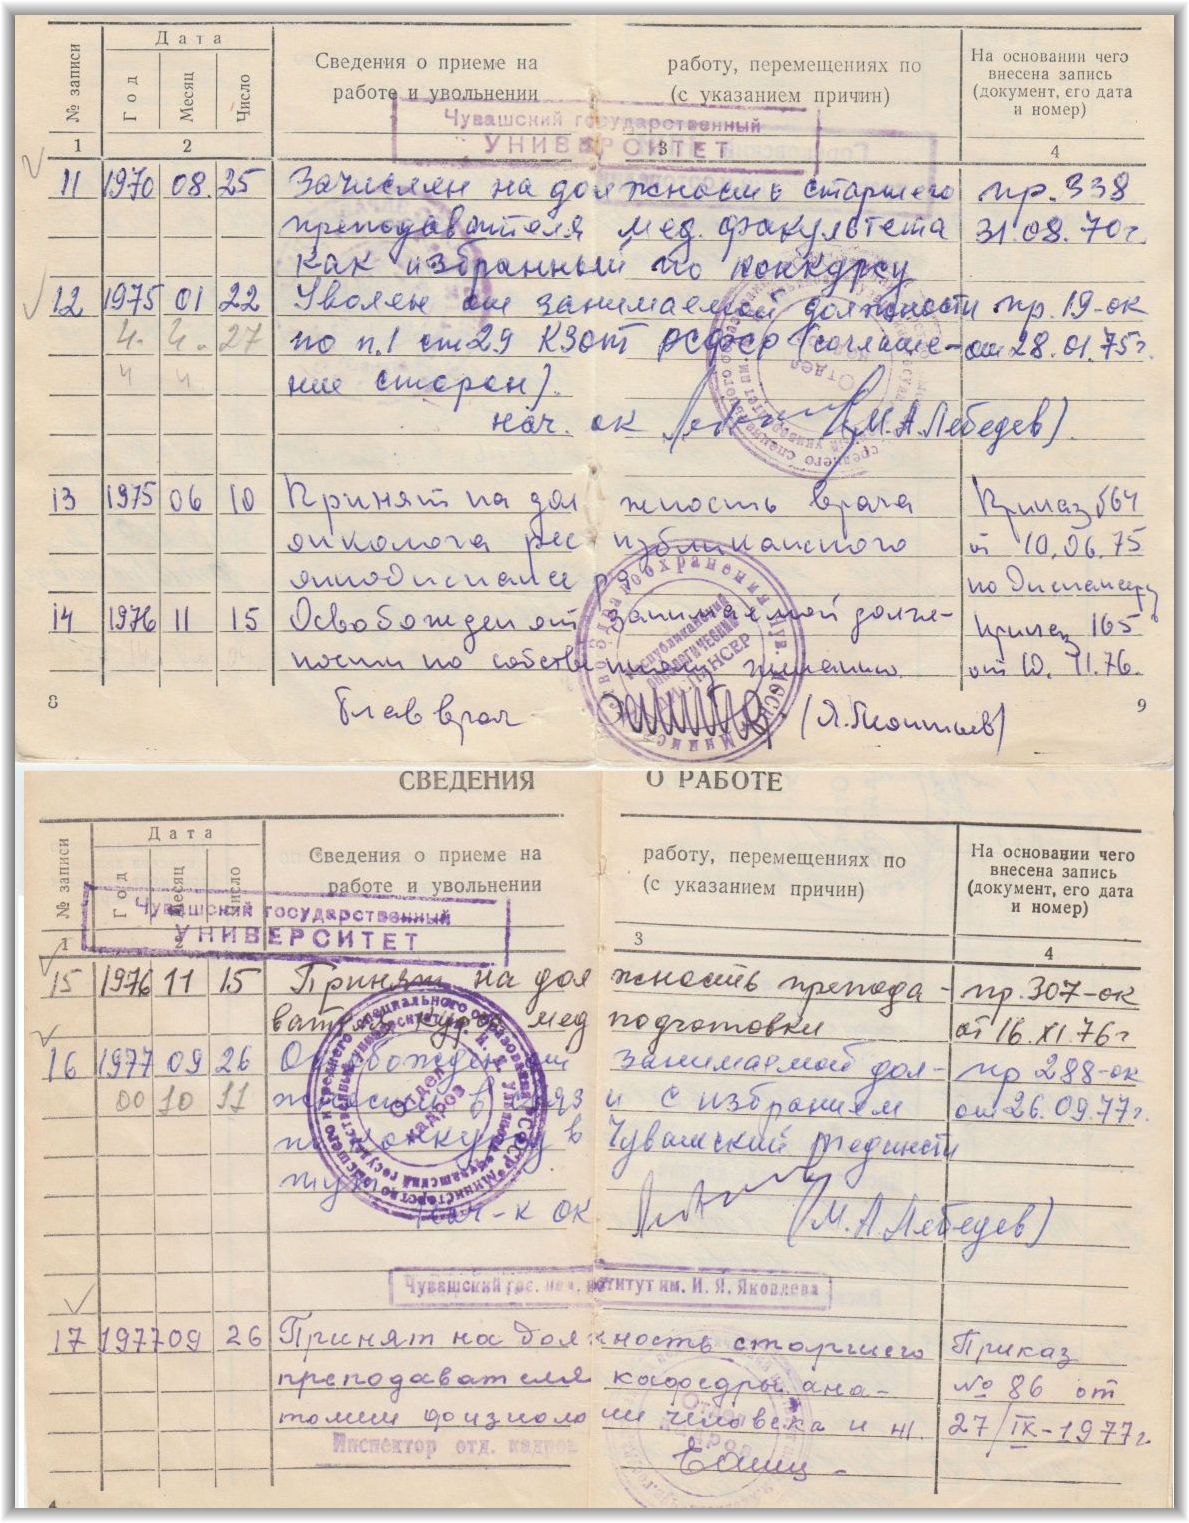 Дата
№ записи
Год
Месяц
Число
Сведения о приеме на работу, перемещениях по
работе и увольнении (с указанием причин)
На основании чего
внесена запись
(документ, его дата
и номер)
1 2 3 4
Чувашский государственный
УНИВЕРСИТЕТ
11 1970 08. 25 Зачислен на должность старшего пр. 338
преподавателя мед. факультета 31.08.70г.
как избранный по конкурсу
12 1975 01 22 Уволен от занимаемой должности пр. 19-ок
4. 4. 27 по п.1 ст 29 КЗОТ РСФСР (соглаше- от 28.01.75г.
4 4 ние сторон).
нач. ок (М.А. Лебедев).
13 1975 06 10 Принят на должность врача Приказ 64
онколога республиканского от 10.06.75
онкодиспансера по Диспансеру
14 1976 11 15 Освобожден от занимаемой долж- Приказ 165
ности по собственному желанию. от 10. 11.76.
8 Глав врач (Л. Леонтьев) 9
СВЕДЕНИЯ О РАБОТЕ
Дата
№ записи
Год
Месяц
Число
Сведения о приеме на работу, перемещениях по
работе и увольнении (с указанием причин)
На основании чего
внесена запись
(документ, его дата
и номер)
1 2 3 4
Чувашский государственный
УНИВЕРСИТЕТ
15 1976 11 15 Принят на должность препода- пр. 307-ок
вателя мед подготовки от 16.XI.76г
16 1977 09 26 Освобожден от занимаемой дол- пр 288-ок
00 10 11 жности в связи с избранием от 26.09.77г.
по конкурсу в Чувашский пединсти
тут
Нач-к ОК (М.А. Лебедев)
Отдел
кадров
Чувашский гос. пед. институт им. И. Я. Яковлева
17 1977 09 26 Принят на должность старшего Приказ
преподавателя кафедры ана- № 86 от
томии физиологии человека и ж. 27/IX-1977г.
Инспектор отд. кадров